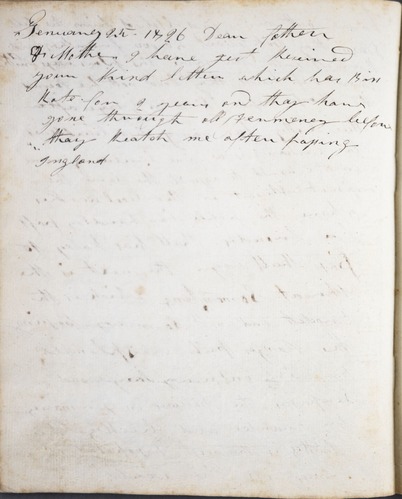 Jenuary 25 - 1796 Dear father
& Mother I have jest Received
your kind letter which has Bin
Rote for 2 years and thay have
gone through all Jermeney before
thay Reatch me after passing
Ingland